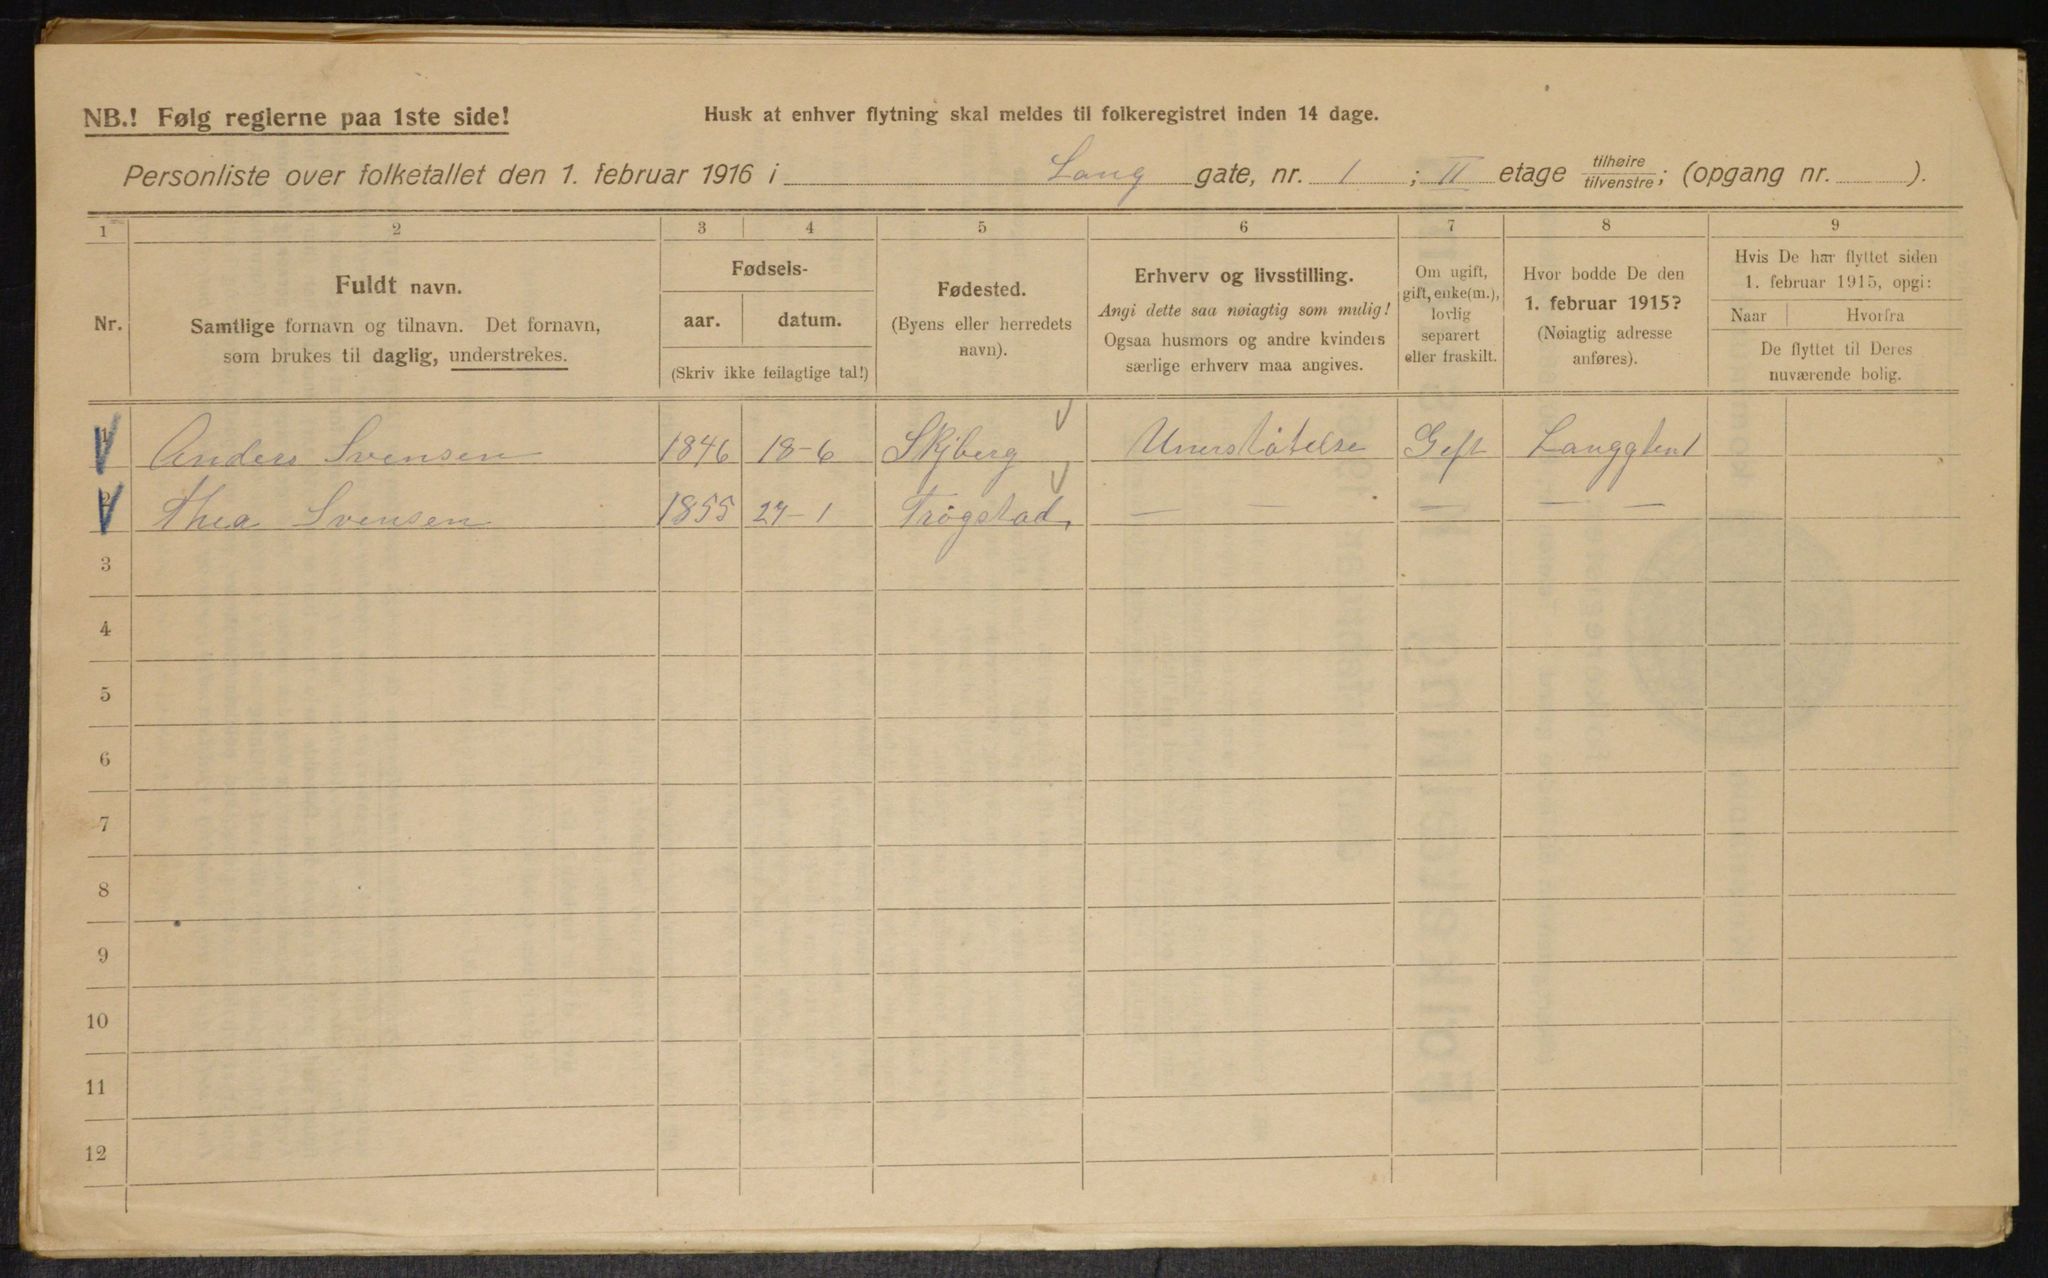 NB.! Følg reglerne paa 1ste side!
Husk at enhver flytning skal meldes til folkeregistret inden 14 dage.
Personliste over folketallet den 1. februar 1916 i Lang gate, nr. 1 ; II etage tilhøire/tilvenstre; (opgang nr. ).
1 2 3 4 5 6 7 8 9
Nr.
Fuldt navn.
Samtlige fornavn og tilnavn. Det fornavn,
som brukes til daglig, understrekes.
Fødsels-
aar. datum.
(Skriv ikke feilagtige tal!)
Fødested.
(Byens eller herredets
navn).
Erhverv og livsstilling.
Angi dette saa nøiagtig som mulig!
Ogsaa husmors og andre kvinders
særlige erhverv maa angives.
Om ugift,
gift, enke(m.),
lovlig
separert
eller fraskilt.
Hvor bodde De den
1. februar 1915?
(Nøiagtig adresse
anføres).
Hvis De har flyttet siden
1. februar 1915, opgi:
Naar Hvorfra
De flyttet til Deres
nuværende bolig.
1 Anders Svensen 1846 18-6 Skjberg Gift
2 Thea Svensen 1855 27-1 Trøgstad, — — — — —
3
4
5
6
7
8
9
10
11
12